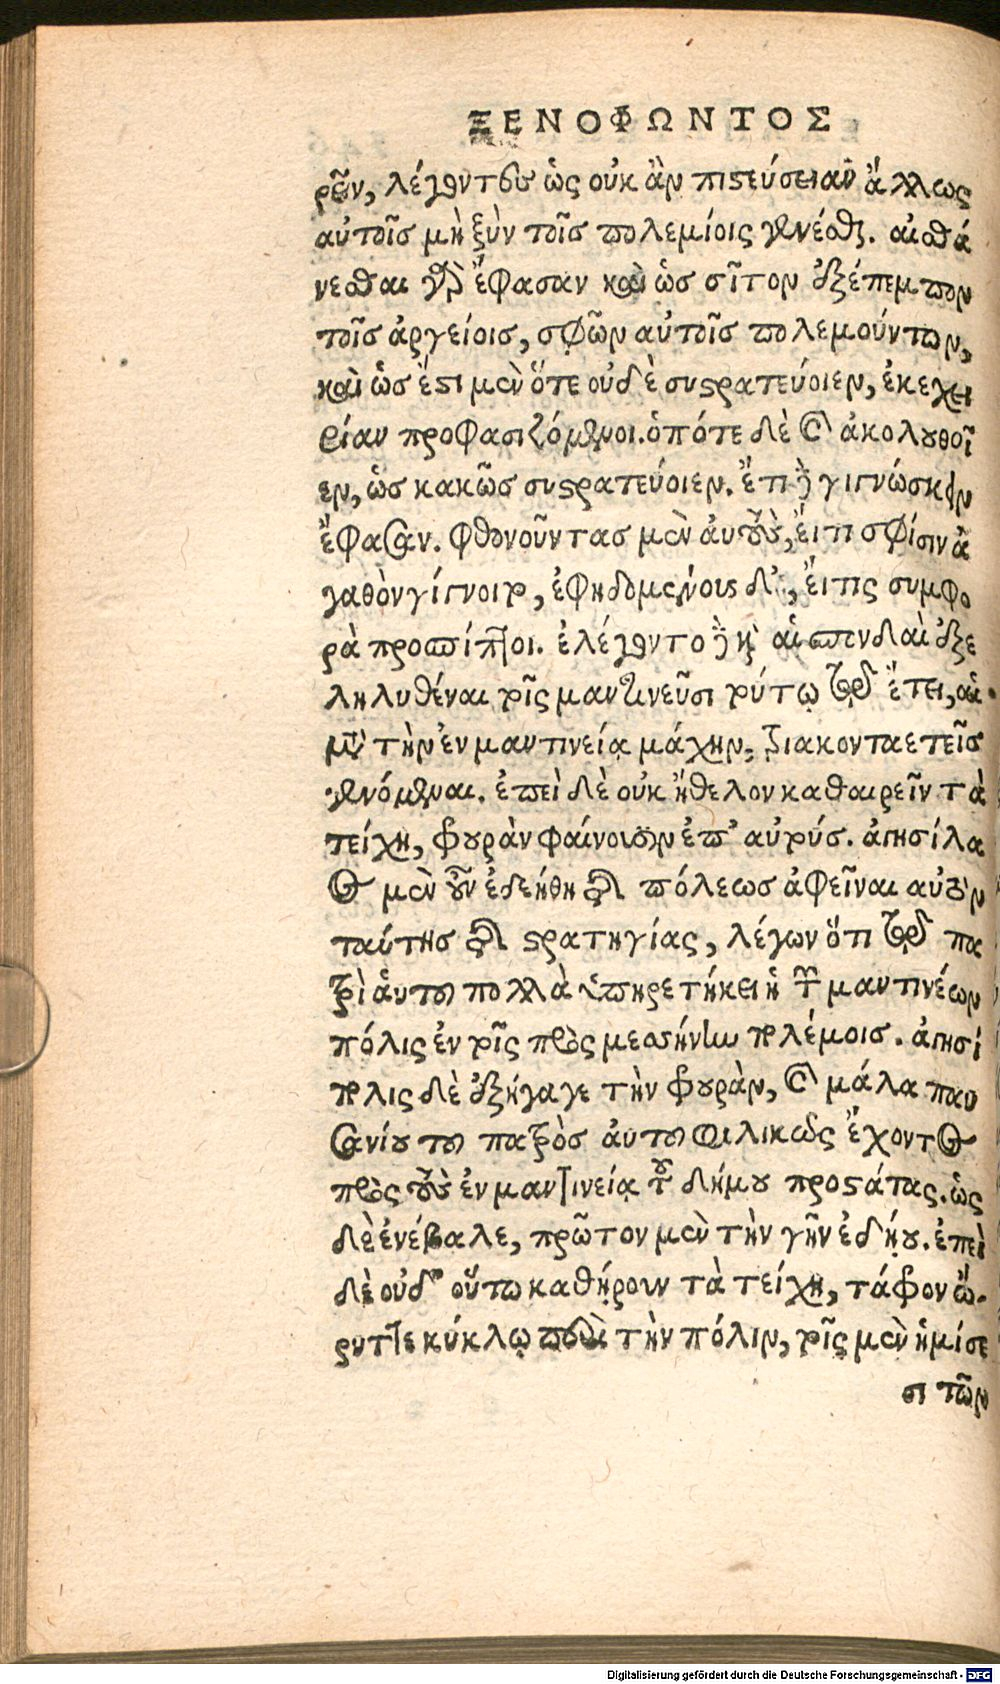 ΞΕΝΟΦΩΝΤΟΣ
ρεῖν, λέγοντες ὡς οὐκ ἂν πιστεύσειαν ἄλλως
αὐτοῖς μὴ ξὺν τοῖς πολεμίοις γενέσθαι. αἰσθά
νεσθαι γὰρ ἔφασαν καὶ ὡς σῖτον ἐξέπεμπον
τοῖς ἀργείοις, σφῶν αὐτοῖς πολεμούντων,
καὶ ὡς ἔστι μὲν ὅτε οὐδὲ συστρατεύοιεν, ἐκεχει
ρίαν προφασιζόμενοι. ὁπότε δὲ καὶ ἀκολουθοῖ
εν, ὡς κακῶς συστρατεύοιεν. ἔτι δὲ γιγνώσκειν
ἔφασαν. φθονοῦντας μὲν αὐτοὺς, εἴ τι σφίσιν ἀ
γαθὸν γίγνοιτο, ἐφηδομένους δ', εἴ τις συμφο
ρὰ προσπίπτοι. ἐλέγοντο δὲ καὶ αἱ σπονδαὶ ἐξε
ληλυθέναι τοῖς μαντινεῦσι τούτῳ τῷ ἔτει, αἱ
μετὰ τὴν ἐν μαντινείᾳ μάχην, τριακονταετεῖς
γενόμεναι. ἐπεὶ δὲ οὐκ ἤθελον καθαιρεῖν τὰ
τείχη, φρουρὰν φαίνουσιν ἐπ' αὐτούς. ἀγησίλα
ος μὲν οὖν ἐδεήθη τῆς πόλεως ἀφεῖναι αὑτὸν
ταύτης τῆς στρατηγίας, λέγων ὅτι τῷ πα
τρὶ αὑτοῦ πολλὰ ὑπηρετήκει ἡ τῶν μαντινέων
πόλις ἐν τοῖς πρὸς μεσσήνην πολέμοις. ἀγησί
πολις δὲ ἐξήγαγε τὴν φρουρὰν, καὶ μάλα παυ
σανίου τοῦ πατρὸς αὐτοῦ φιλικῶς ἔχοντος
πρὸς τοὺς ἐν μαντινείᾳ τοῦ δήμου προστάτας. ὡς
δὲ ἐνέβαλε, πρῶτον μὲν τὴν γῆν ἐδῄου. ἐπεὶ
δὲ οὐδ' οὕτω καθῄρουν τὰ τείχη, τάφρον ὤ-
ρυττε κύκλῳ περὶ τὴν πόλιν, τοῖς μὲν ἡμίσε
σι τῶν
Digitalisierung gefördert durch die Deutsche Forschungsgemeinschaft - DFG